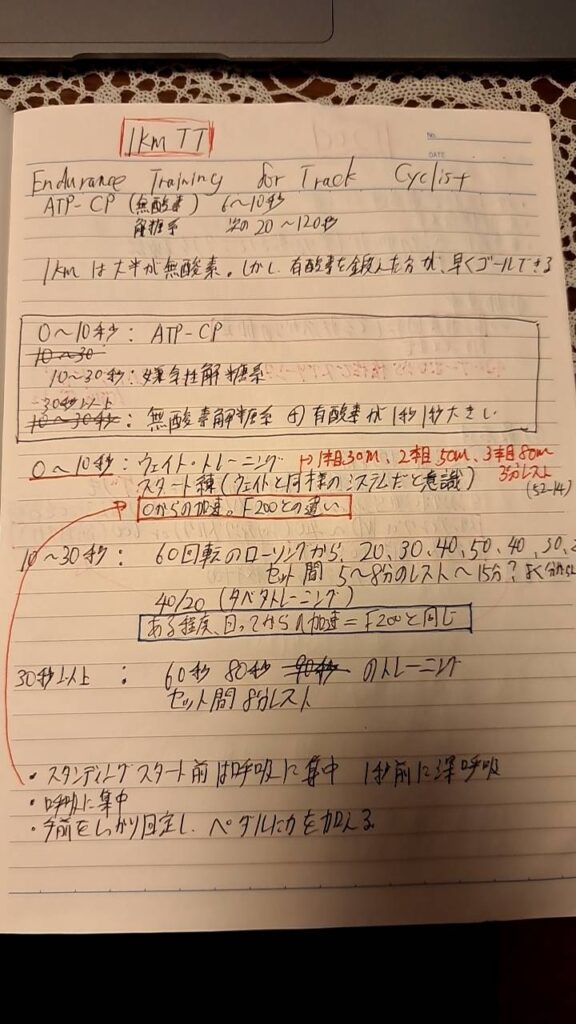 1km TT
No.
DATE
Endurance Training for Track Cyclist
ATP-CP (無酸素) 6〜10秒
解糖系 次の20〜120秒
1kmは大半が無酸素。しかし、有酸素を鍛えた方が、早くゴールできる
0〜10秒: ATP-CP
10〜30
10〜30秒: 嫌気性解糖系
30秒以上
10〜30秒: 無酸素解糖系 有酸素が1秒1秒大きい
0〜10秒: ウェイト・トレーニング → 1本目30m、2本目50m、3本目80m
スタート種(ウェイトと同様のシステムだと意識) 3分レスト
(52-14)
0からの加速。F200との違い
10〜30秒: 60回転のローリングから、20、30、40、50、40、30、2
セット間 5〜8分のレスト〜15分?
40/20 (タバタトレーニング)
ある程度、回ってからの加速=F200と同じ
30秒以上: 60秒 80秒 90秒 のトレーニング
セット間 8分レスト
・スタンディングスタート前は呼吸に集中 1秒前に深呼吸
・呼吸に集中
・手前をしっかり固定し、ペダルに力を加える